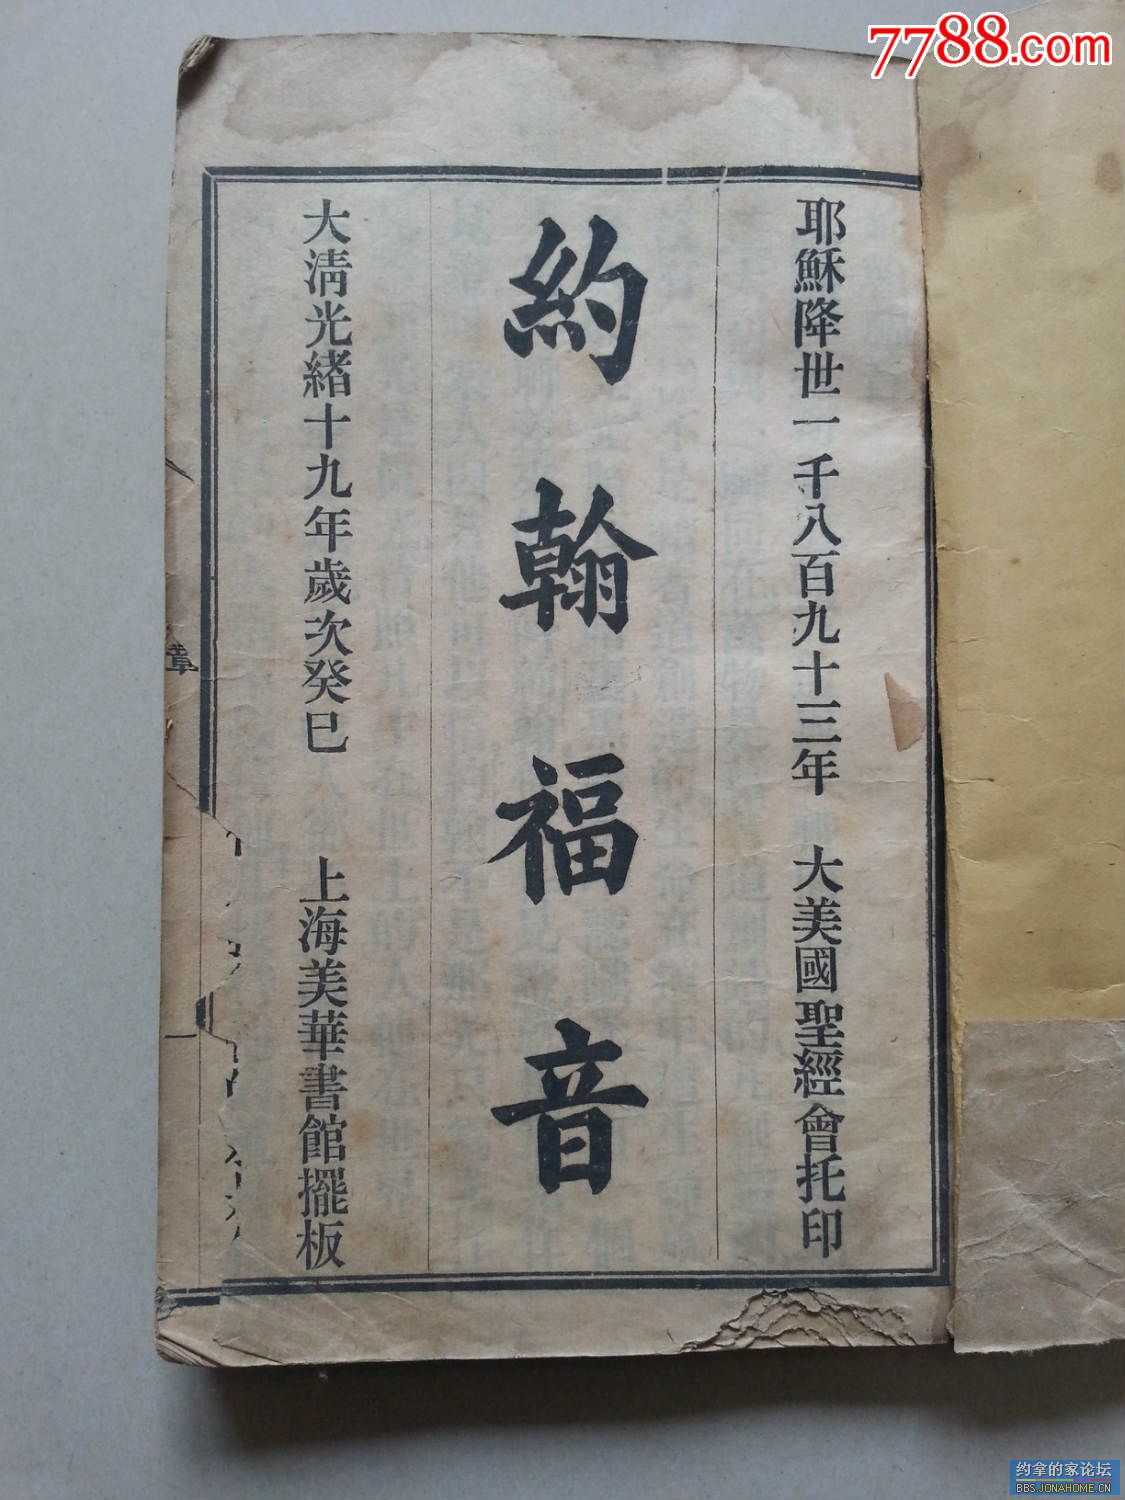 7788.com
耶穌降世一千八百九十三年 大美國聖經會托印
約翰福音
大清光緒十九年歲次癸巳 上海美華書館擺板
章
一
约拿的家论坛
BBS.JONAHOME.CN